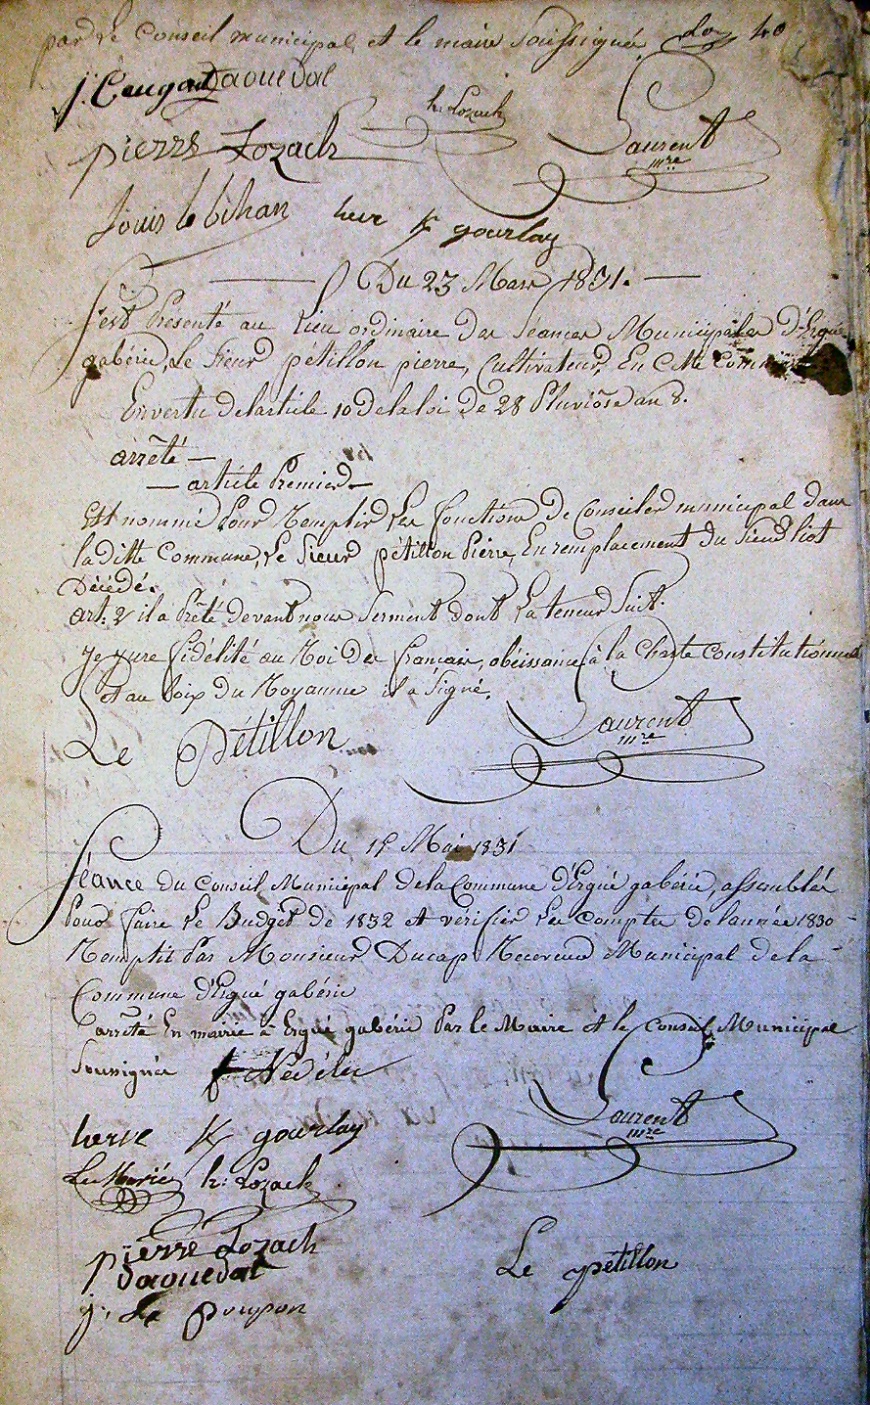 par le Conseil municipal et le maire Soussignés 40
j: Caugant Daouedal
h: Lozach
pierre Lozach
Laurent
mre
Louis le bihan herve K gourlay
Du 23 Mars 1831.
S'est Présenté au Lieu ordinaire des Séances Municipales d'Ergué
gabéric, Le Sieur pétillon pierre, Cultivateur, En Cette Commune
En vertu de l'article 10 de la loi de 28 Pluviôse an 8.
arrêté
article Premier
Est nommé Pour Remplir Les fonctions De Conseiler municipal dans
la ditte Commune, Le Sieur pétillon Pierre, En remplacement du Sieur liot
Décédé.
art: 2 il a Prêté devant nous Serment dont La teneur Suit.
Je jure fidélité au Roi Des français, obéissance à la Charte Constitutionnel
Et au Loix Du Royaume il a Signé.
Le Pétillon
Laurent
mre
Du 15 Mai 1831
Séance Du Conseil Municipal De la Commune d'Ergué gabéric, assemblés
Pour faire Le Budget De 1832 et vérifier Les comptes De l'année 1830
Remplit Par Monsieur Ducap Receveur Municipal de la
Commune d'Ergué gabéric
arrêté En mairie à Ergué gabéric Par le Maire et le Conseil Municipal
Soussignés Nédélec
Laurent
mre
herve K gourlay
h: Lozach
pierre Lozach
Daouedal
Le pétillon
j: Le poupon